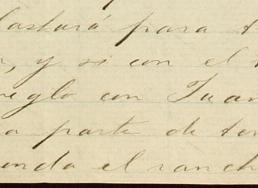 lastará para t
r, y si con el
reglo con Juan
a parte de ter
onda el ranch